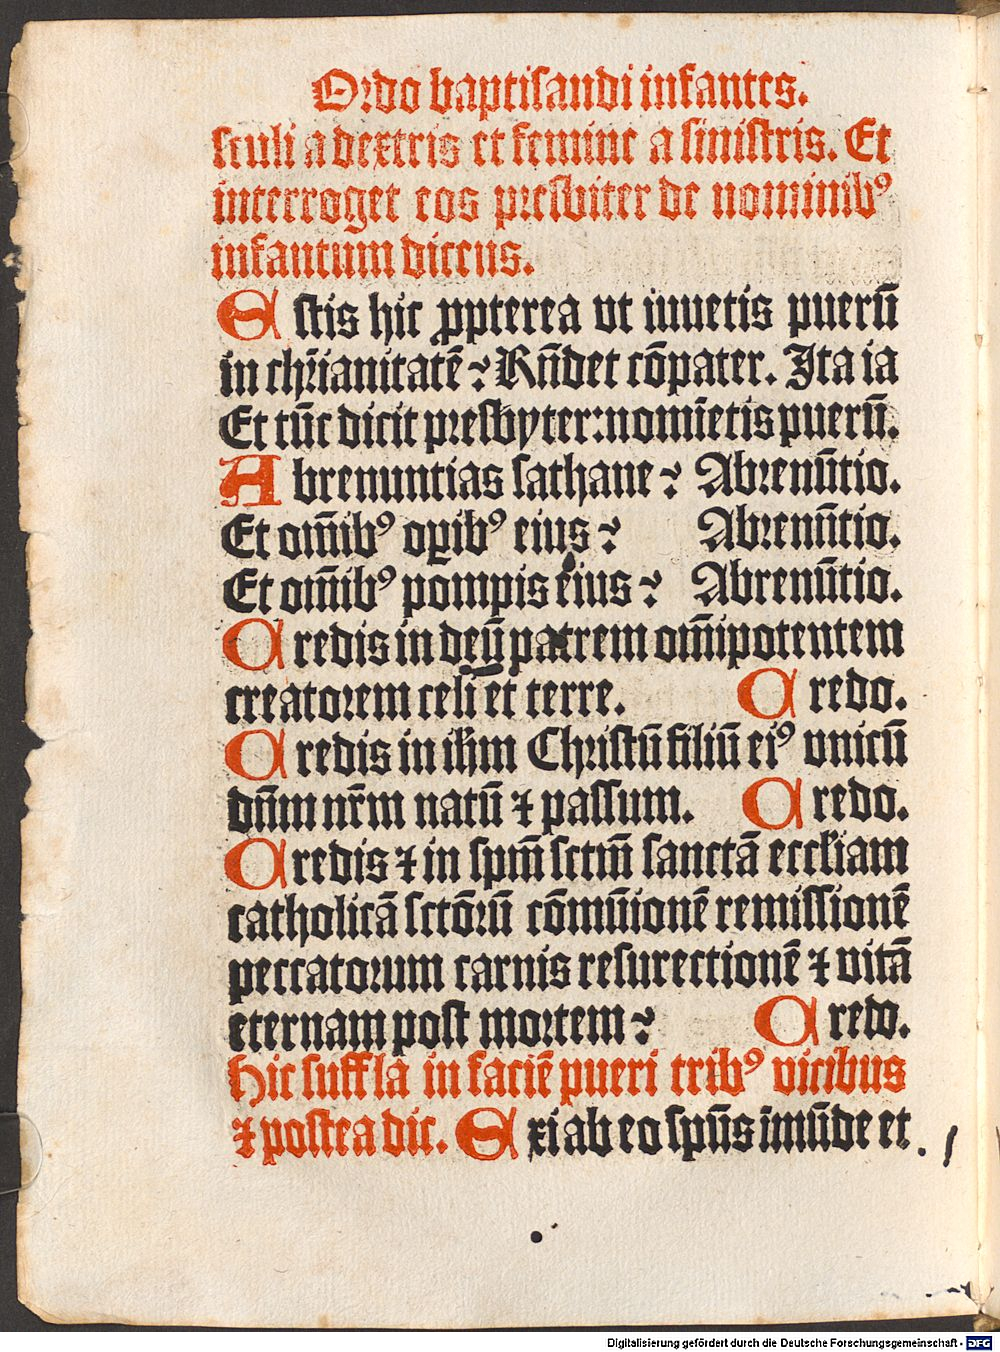 Ordo baptisandi infantes.
sculi a dextris et femine a sinistris. Et
interroget eos presbiter de nominibꝰ
infantum dicens.
Estis hic ꝓpterea vt iuuetis puerū
in chr̄ianitatē? Rn̄det cōpater. Ita ia
Et tūc dicit presbyter: nomīetis puerū.
Abrenuntias sathane? Abrenūtio.
Et om̄ibꝰ oꝑibꝰ eius? Abrenūtio.
Et om̄ibꝰ pompis eius? Abrenūtio.
Credis in deū patrem om̄ipotentem
creatorem celi et terre. Credo.
Credis in ihm̄ Christū filiū eiꝰ vnicū
dn̄m nr̄m natū ⁊ passum. Credo.
Credis ⁊ in spm̄ sctm̄ sanctā eccl̄iam
catholicā sctōrū cōmūionē remissionē
peccatorum carnis resurectionē ⁊ vitā
eternam post mortem? Credo.
Hic suffla in faciē pueri tribꝰ vicibus
⁊ postea dic. Exi ab eo spūs īmūde et
Digitalisierung gefördert durch die Deutsche Forschungsgemeinschaft - DFG